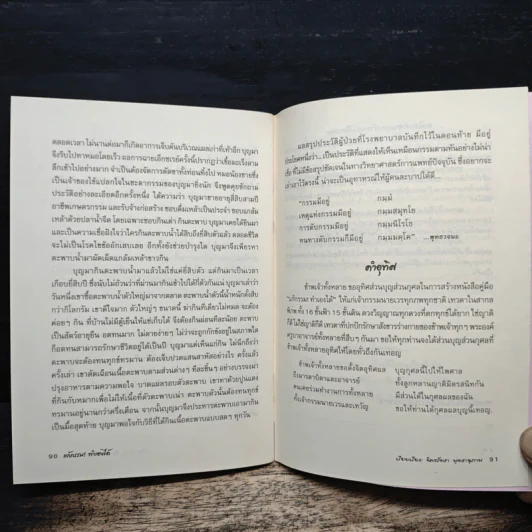 ตลอดเวลา ไม่นานต่อมาก็เกิดอาการเจ็บตันบริเวณแผลเก่าที่เท้าอีก บุญมา
จึงรีบไปหาหมอโดยเร็ว ผลการฉายเอ็กซเรย์ครั้งนี้ปรากฏว่าเชื้อมะเร็งลาม
ลึกเข้าไปอย่างมาก จำเป็นต้องจัดการตัดขาทิ้งก่อนทั้งไป หมอน้องชายซึ่ง
เป็นเจ้าของไข้แปลกใจในชะตากรรมของบุญมายิ่งนัก จึงพูดคุยซักถาม
ประวัติอย่างละเอียดอีกครั้งหนึ่ง ได้ความว่า บุญมาชายอายุสี่สิบสามปี
อาชีพเกษตรกรรม และรับจ้างก่อสร้าง ชอบดื่มเหล้าเป็นประจำ ชอบแกล้ม
เหล้าด้วยปลาน้ำจืด โดยเฉพาะชอบกินเต่า กินตะพาบ บุญมาเคยได้ยินมา
และมีความเชื่อฝังใจว่าใครกินตะพาบน้ำได้สิบถึงยี่สิบตัวแล้ว ตลอดชีวิต
จะไม่เป็นโรคไขข้ออักเสบเลย อีกทั้งยังช่วยบำรุงได บุญมาจึงเพียรหา
ตะพาบน้ำมาผัดเผ็ดแกล้มเหล้าขาวกิน
บุญมากินตะพาบน้ำมาแล้วไม่ใช่แค่ยี่สิบตัว แต่กินมาเป็นเวลา
เกือบยี่สิบปี ซึ่งนับไม่ถ้วนว่าที่ผ่านมากินเข้าไปได้กี่ตัวกันแน่ บุญมาเล่าว่า
วันหนึ่งเขาซื้อตะพาบน้ำตัวใหญ่มาจากตลาด ตะพาบน้ำตัวนี้น้ำหนักตั้งสิบ
กว่ากิโลกรัม เขาดีใจมาก ตัวใหญ่ๆ ขนาดนี้ คงกินได้หลายวัน คิดว่าจะ
ค่อยๆ กิน ที่บ้านไม่มีตู้เย็นให้แช่เก็บได้ จึงต้องกินผ่อนทีละน้อย ตะพาบ
เป็นสัตว์อายุยืน อดทนมาก ไม่ตายง่ายๆ ไม่ว่าจะถูกกักขังอยู่ในสภาพใด
ก็อดทนสามารถรักษาชีวิตอยู่ได้เป็นปี บุญมาแค่เห็นแก่กิน ไม่นึกถึงว่า
ตะพาบจะต้องทนทุกข์ทรมาน ต้องเจ็บปวดแสนสาหัสอย่างไร ครั้งแล้ว
ครั้งเล่า เขาตัดเฉือนเนื้อตะพาบตามส่วนต่างๆ ทีละชิ้นๆ อย่างบรรจงมา
ปรุงอาหารตามความพอใจ บาดแผลรอบตัวตะพาบ เขาหาตัวยาปูนแดง
ที่กินกับหมากเพื่อไม่ให้เนื้อที่ตัวตะพาบเน่า ตะพาบตัวนั้นต้องทนทุกข์
ทรมานอยู่นานกว่าครึ่งเดือน จากนั้นบุญมาจึงประหารตะพาบเอามากิน
เป็นมื้อสุดท้าย บุญมาพอใจกับวิธีที่ได้กินตะพาบเป็นกับแกล้มสดๆ ทุกวัน
90 แก้กรรม! ทำเองได้
ผลสรุปประวัติผู้ป่วยที่โรงพยาบาลบันทึกไว้ในตอนท้าย มีอยู่
ประโยคหนึ่งว่า...เป็นประวัติที่แสดงให้เห็นเหมือนกรรมตามทันอย่างไม่น่า
เชื่อ ที่ไม่มีข้อสรุปชัดเจนในทางวิทยาศาสตร์การแพทย์ปัจจุบัน ซึ่งอยากจะ
เล่าเอาไว้ตรงนี้ น่าจะเป็นอุทาหรณ์ให้ผู้คนละบาปได้ดี...
“กรรมมีอยู่ กมฺมํ
เหตุแห่งกรรมมีอยู่ กมฺมสมุทโย
การดับกรรมมีอยู่ กมฺมนิโรโธ
หนทางดับกรรมก็มีอยู่ กมฺมมคฺโค” ...พุทธวจนะ
คำอุทิศ
ข้าพเจ้าทั้งหลาย ขออุทิศส่วนบุญส่วนกุศลในการสร้างหนังสือคู่มือ
“แก้กรรม! ทำเองได้” ให้แก่เจ้ากรรมนายเวรทุกภพทุกชาติ เทวดาในสากล
พิภพ ทั้ง 16 ชั้นฟ้า 15 ชั้นดิน ดวงวิญญาณทุกดวงที่ตกทุกข์ได้ยาก ใช่ญาติ
ก็ดี ไม่ใช่ญาติก็ดี เทวดาที่ปกปักรักษาสังขารร่างกายของข้าพเจ้าทุกๆ พระองค์
ครูบาอาจารย์ทั้งหลายที่สืบๆ กันมา ขอให้ทุกท่านจงได้ส่วนบุญส่วนกุศลที่
ข้าพเจ้าทั้งหลายอุทิศให้โดยทั่วถึงกันเทอญ
ข้าพเจ้าทั้งหลายขอตั้งจิตอุทิศผล บุญกุศลนี้ไปให้ไพศาล
ถึงมารดาบิดาและอาจารย์ ทั้งลูกหลานญาติมิตรสนิทกัน
คนเคยร่วมทำงานการทั้งหลาย มีส่วนได้ในกุศลผลของฉัน
ทั้งเจ้ากรรมนายเวรและเทวัญ ขอให้ท่านได้กุศลผลบุญนี้เทอญ.
เรียบเรียง: จิตรลัดดา พุทธานุภาพ 91